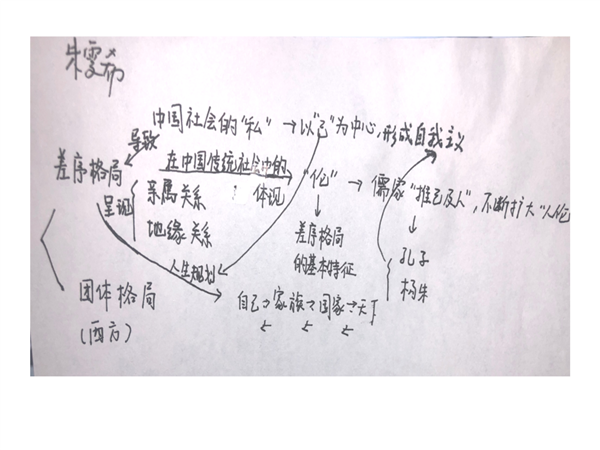 朱雯希
中国社会的“私”→以“己”为中心,形成自我主义
导致
差序格局
在中国传统社会中的
体现
呈现
亲属关系
地缘关系
“伦”→儒家“推己及人”,不断扩大“人伦”
差序格局
的基本特征
孔子
杨朱
人生规划
团体格局
(西方)
自己→家族→国家→天下